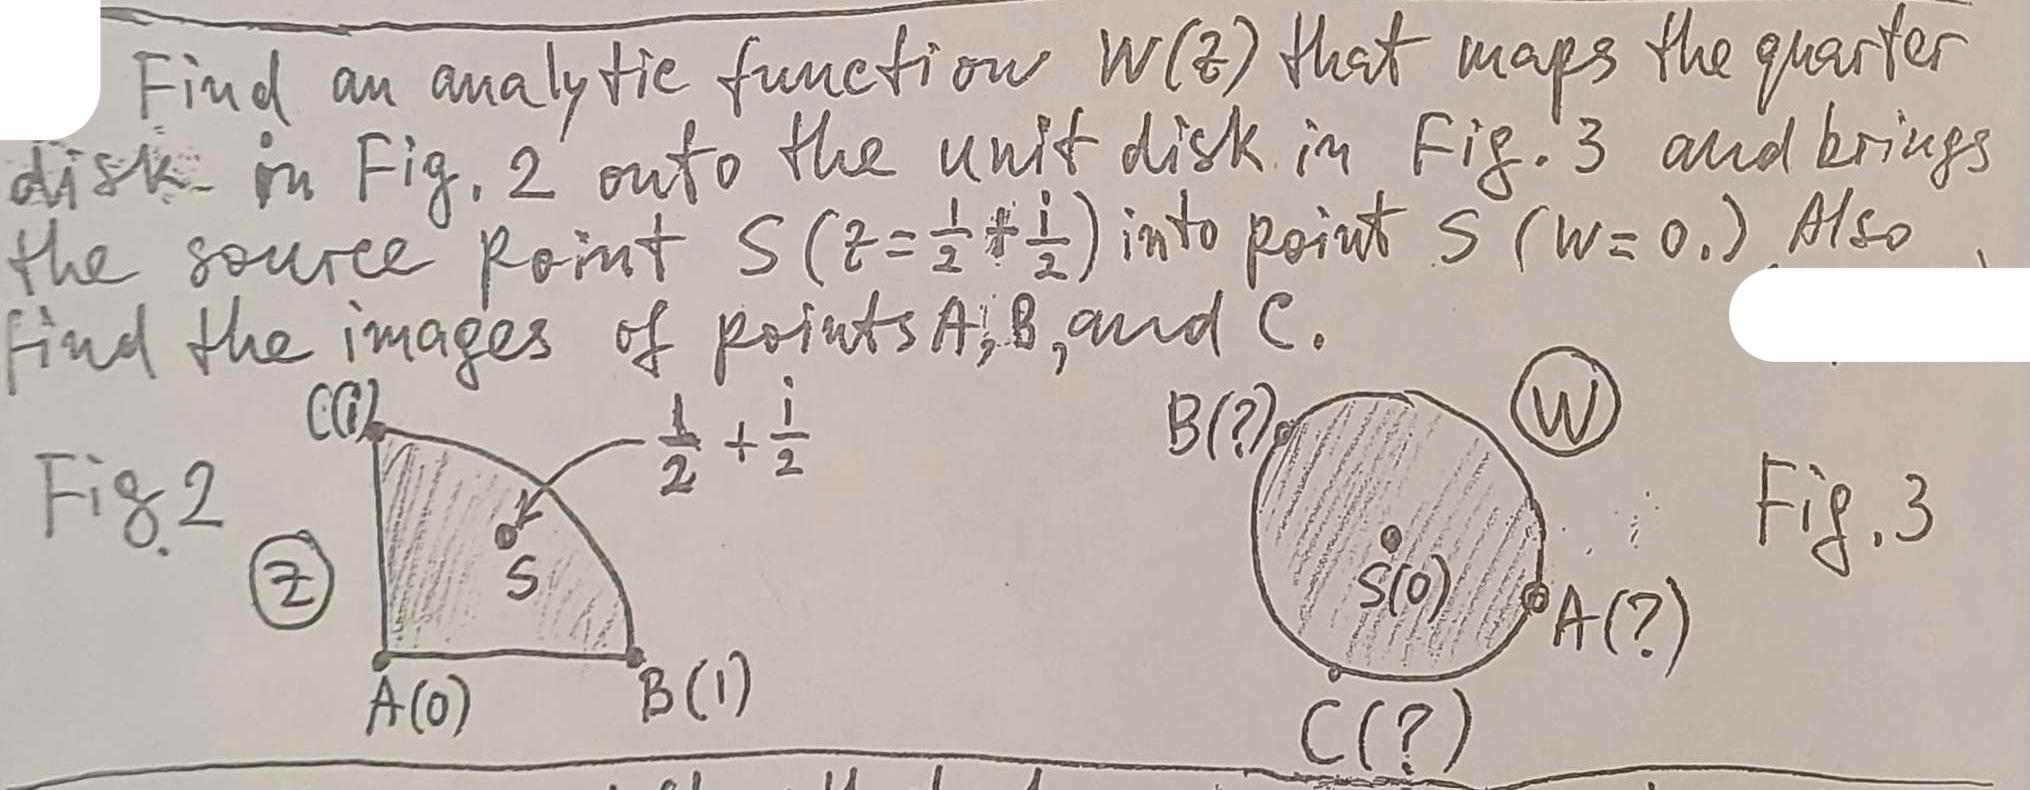 Find an analytic function W(z) that maps the quarter
disk in Fig. 2 onto the unit disk in Fig. 3 and brings
the source point S (z = 1/2 + i/2) into point S (W = 0.) Also
find the images of points A, B, and C.
C(i)
1/2 + i/2
B(?)
W
Fig. 2
Fig. 3
Z
S
S(0)
A(?)
A(0)
B(1)
C(?)